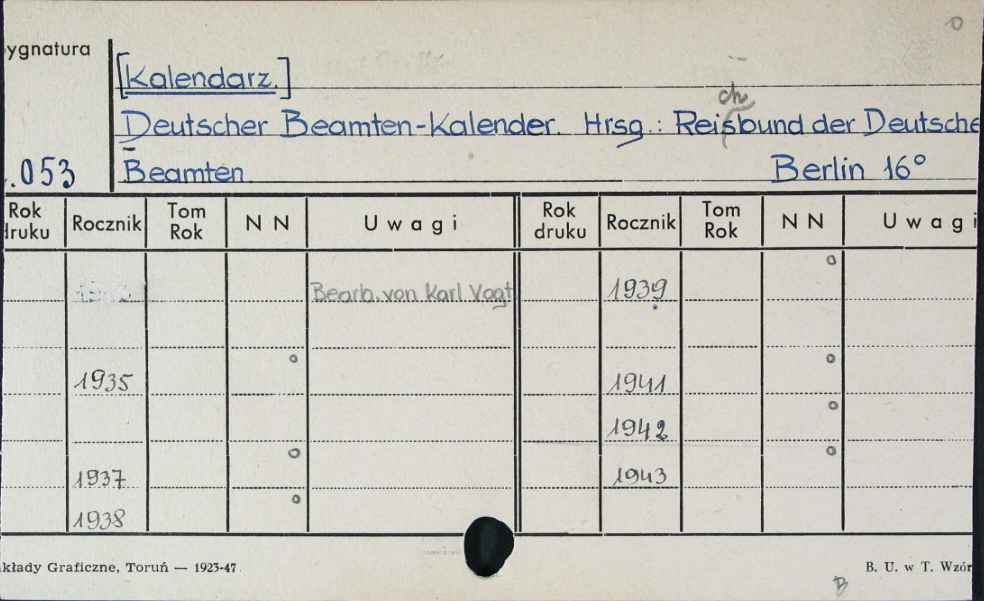 ygnatura
[Kalendarz.]
ch
Deutscher Beamten-Kalender. Hrsg.: Reisbund der Deutsche
.053 Beamten Berlin 16°
Rok druku Rocznik Tom Rok N N Uwagi Rok druku Rocznik Tom Rok N N Uwagi
Bearb. von Karl Vogt 1939
1935 1941
1942
1937 1943
1938
kłady Graficzne, Toruń — 1923-47 B. U. w T. Wzór
B